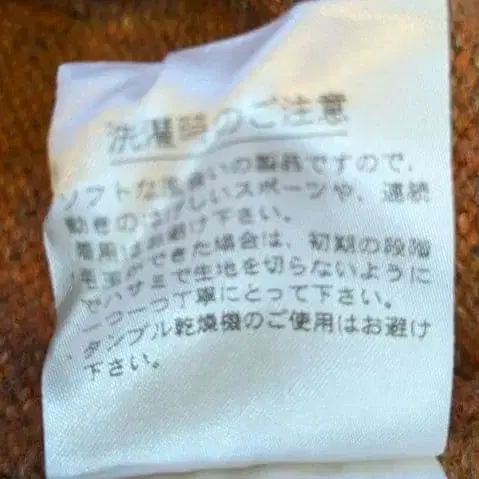 洗濯時のご注意
ソフトな風合いの製品ですので、
動きのはげしいスポーツや、連続
着用はお避け下さい。
毛玉ができた場合は、初期の段階
でハサミで生地を切らないように
一つ一つ丁寧にとって下さい。
・タンブル乾燥機のご使用はお避け
下さい。